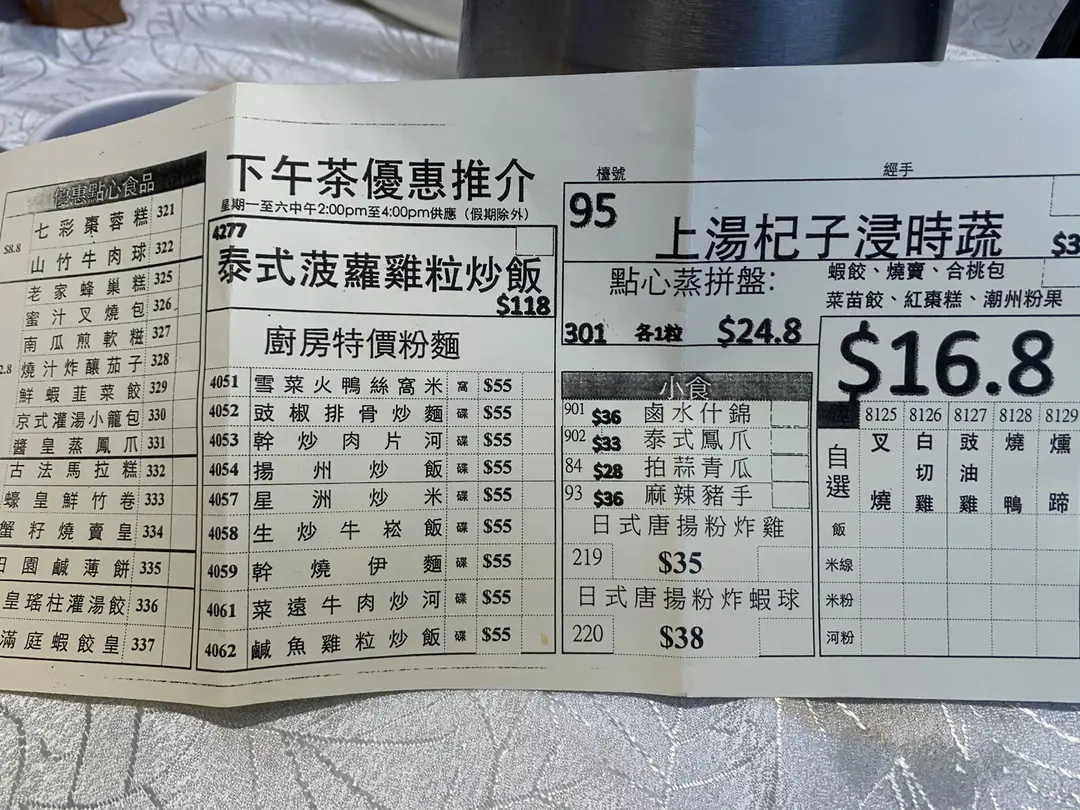 優惠點心食品
七彩棗蓉糕 321
$8.8
山竹牛肉球 322
老家蜂巢糕 325
蜜汁叉燒包 326
南瓜煎軟糍 327
燒汁炸釀茄子 328
鮮蝦韮菜餃 329
京式灌湯小籠包 330
醬皇蒸鳳爪 331
古法馬拉糕 332
蠔皇鮮竹卷 333
蟹籽燒賣皇 334
田園鹹薄餅 335
皇瑤柱灌湯餃 336
滿庭蝦餃皇 337
下午茶優惠推介
星期一至六中午2:00pm至4:00pm供應（假期除外）
4277
泰式菠蘿雞粒炒飯
$118
廚房特價粉麵
4051 雪菜火鴨絲窩米 窩 $55
4052 豉椒排骨炒麵 碟 $55
4053 幹炒肉片河 碟 $55
4054 揚州炒飯 碟 $55
4057 星洲炒米 碟 $55
4058 生炒牛崧飯 碟 $55
4059 幹燒伊麵 碟 $55
4061 菜遠牛肉炒河 碟 $55
4062 鹹魚雞粒炒飯 碟 $55
檯號
經手
95 上湯杞子浸時蔬
點心蒸拼盤:
蝦餃、燒賣、合桃包
菜苗餃、紅棗糕、潮州粉果
301 各1粒 $24.8
小食
901 $36 鹵水什錦
902 $33 泰式鳳爪
84 $28 拍蒜青瓜
93 $36 麻辣豬手
日式唐揚粉炸雞
219 $35
日式唐揚粉炸蝦球
220 $38
$16.8
8125 8126 8127 8128 8129
自選
叉燒
白切雞
豉油雞
燒鴨
燻蹄
飯
米線
米粉
河粉